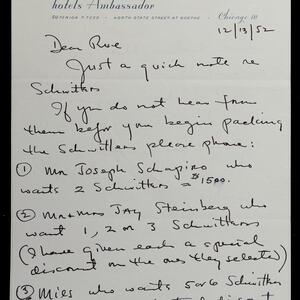 hotels Ambassador
SUPERIOR 7-7200 · NORTH STATE STREET AT GOETHE · Chicago 10
12/13/52
Dear Rose
Just a quick note re
Schwitters
If you do not hear from
them before you begin packing
the Schwitters please phone:
① Mr Joseph Schapiro who
wants 2 Schwitters = $1500.
② Mr & Mrs Jay Steinberg who
want 1, 2 or 3 Schwitters
(I have given each a special
discount on the ones they selected)
③ Mies who wants 5 or 6 Schwitters